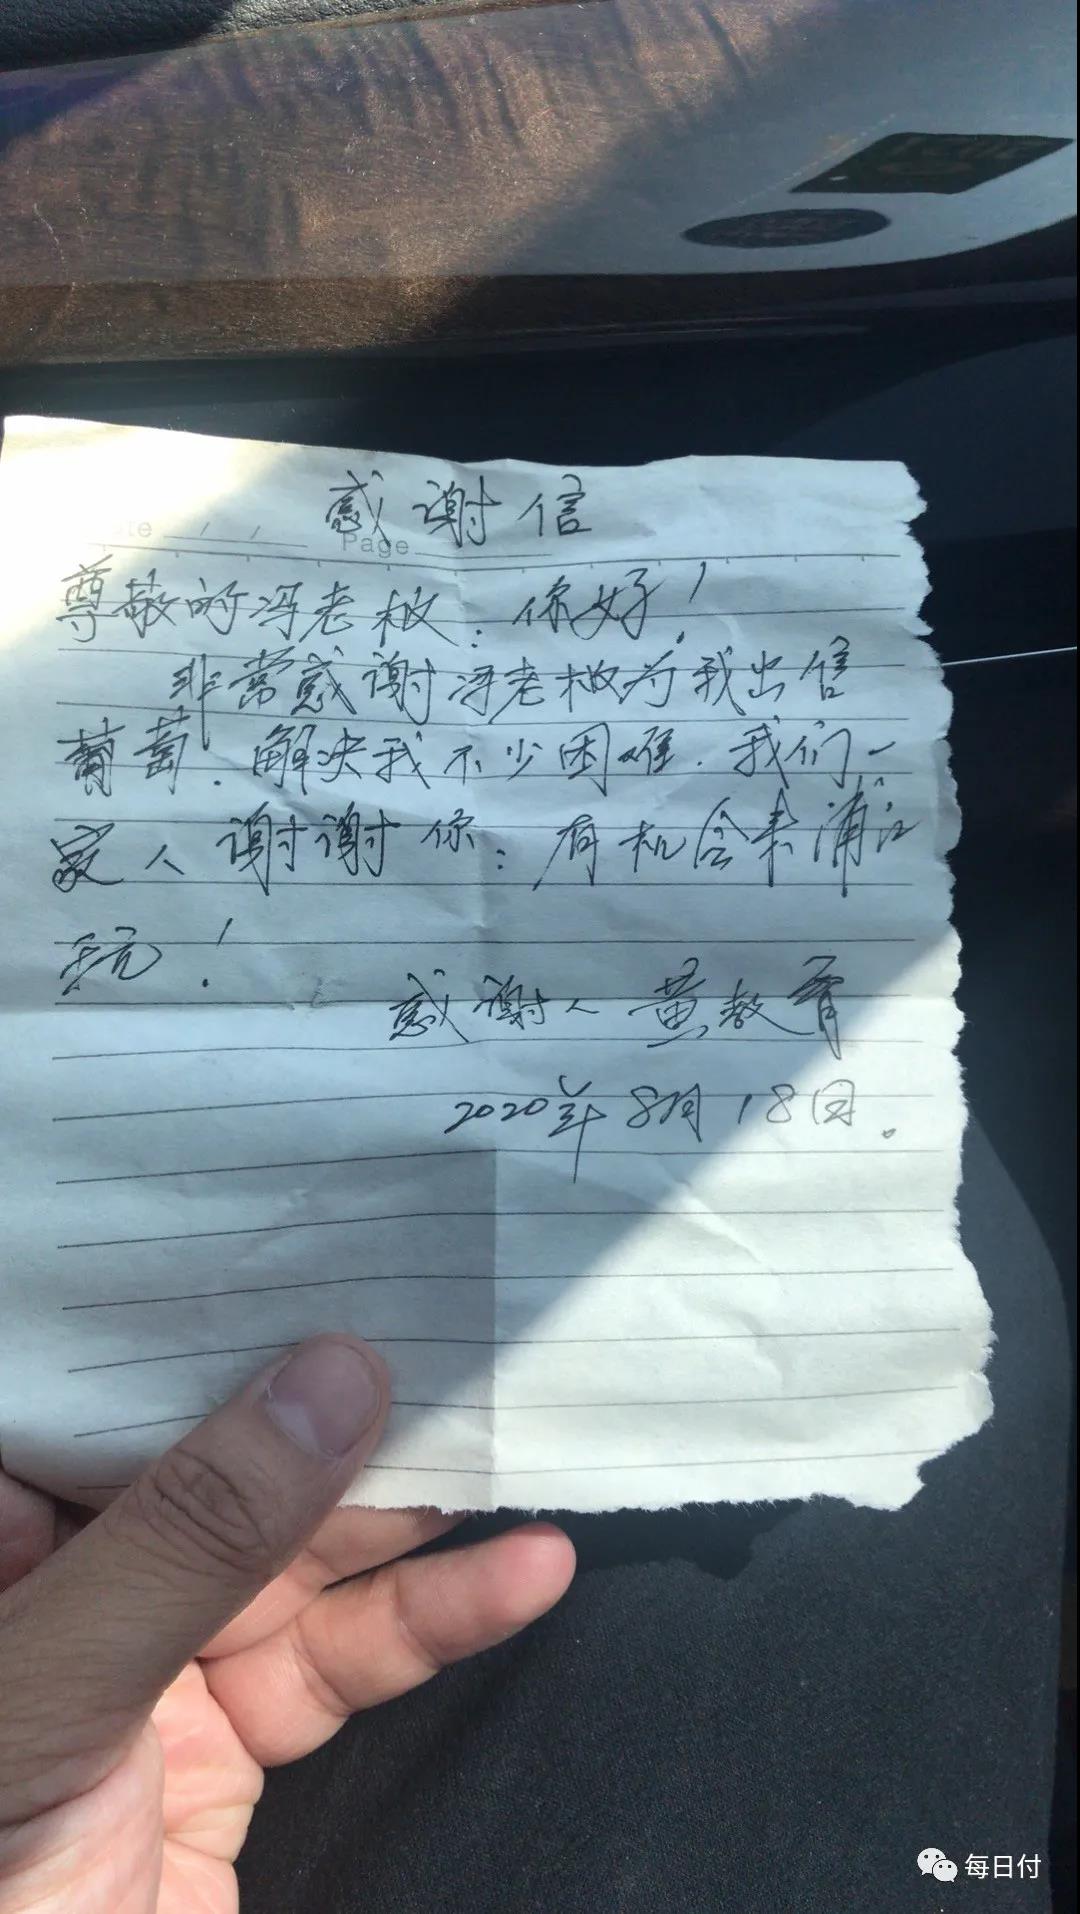 感谢信
Date / / Page
尊敬的冯老板：你好！
非常感谢冯老板为我出信
葡萄．解决我不少困难．我们一
家人谢谢你：有机会来浦江
玩！
感谢人 黄教育
2020年8月18日。
每日付